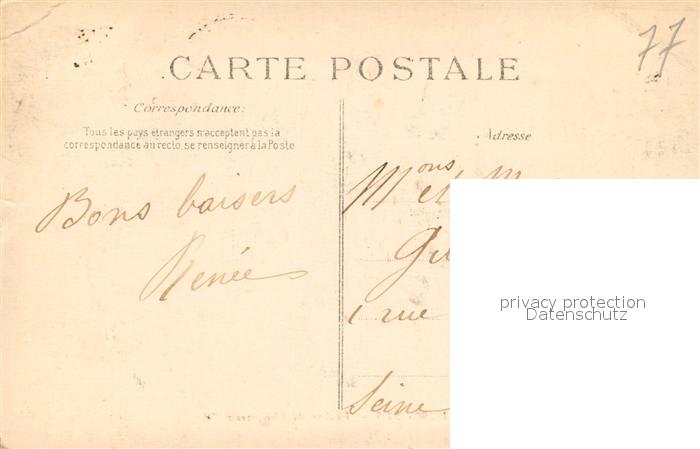 77
CARTE POSTALE
Correspondance:
Tous les pays étrangers n'acceptent pas la
correspondance au recto, se renseigner à la Poste
Bons baisers
Renée
Adresse
Mons et M
Gu
1 rue
Seine
privacy protection
Datenschutz